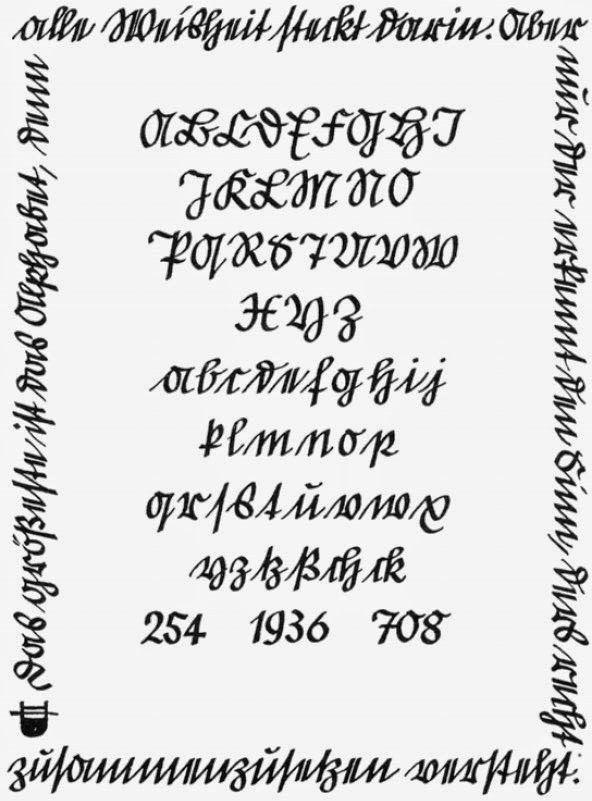 Das größeſte iſt das Alphabet, denn
alle Weisheit ſteckt darin. Aber
nur der erkennt den Sinn, ders recht
zuſammenzuſetzen verſteht.
ABCDEFGHI
JKLMNO
PQRSTUVW
XYZ
abcdefghij
klmnop
qrſstuvwx
yztzßchck
254 1936 708